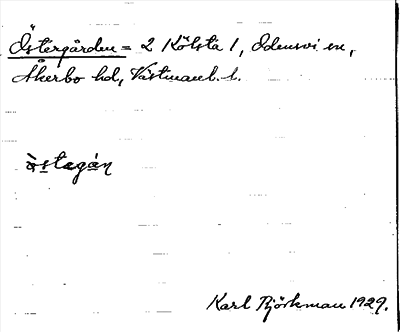 Östergården = 2 Kölsta 1, Odensvi sn,
Åkerbo hd, Västmanl. l.
òstægán
Karl Björkman 1929.